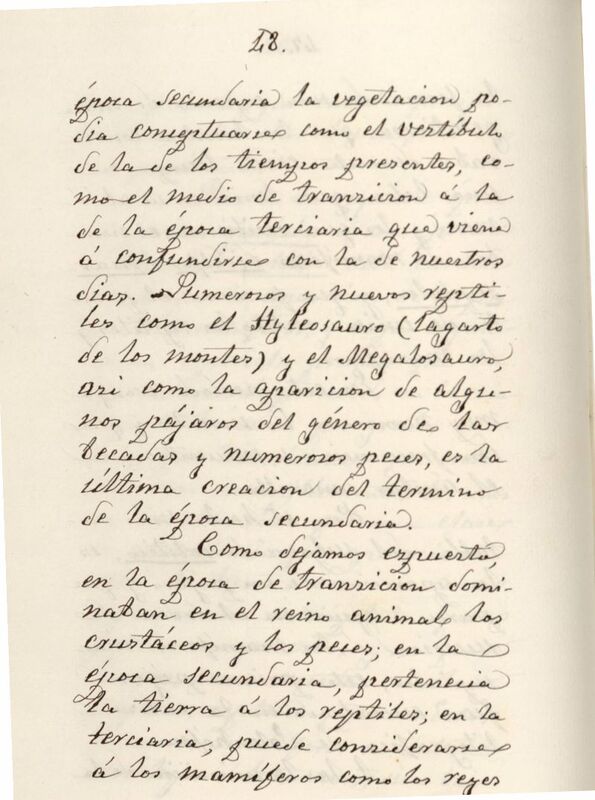 48.
época secundaria la vegetacion po-
dia conceptuarse como el vestíbulo
de la de los tiempos presentes, co-
mo el medio de transicion á la
de la época terciaria que viene
á confundirse con la de nuestros
dias. Numerosos y nuevos repti-
les como el Hyleosauro (lagarto
de los montes) y el Megalosauro,
asi como la aparicion de algu-
nos pájaros del género de las
becadas y numerosos peces, es la
última creacion del termino
de la época secundaria.
Como dejamos espuesto,
en la época de transicion domi-
naban en el reino animal los
crustáceos y los peces; en la
época secundaria, pertenecia
la tierra á los reptiles; en la
terciaria, puede considerarse
á los mamíferos como los reyes